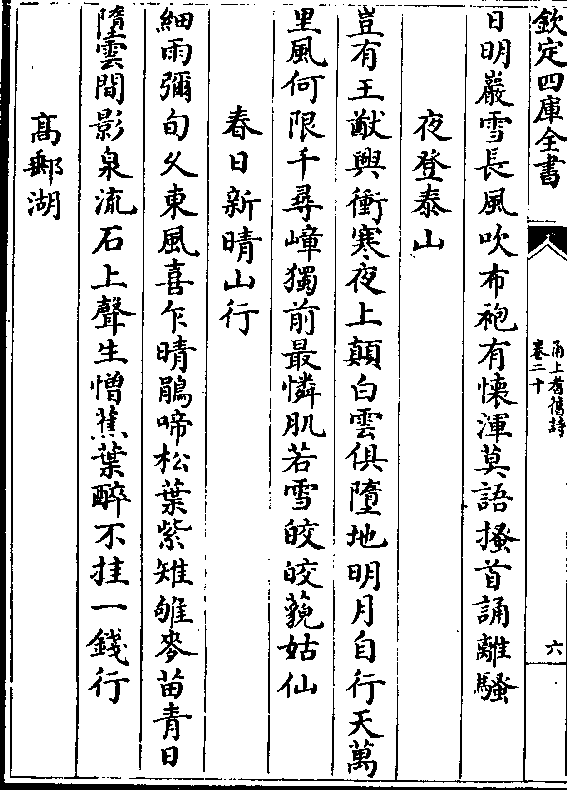 欽定四庫全書
甬上耆舊詩
卷二十
六
日明巖雪長風吹布袍有懷渾莫語搔首誦離騷
夜登泰山
豈有王猷興衝寒夜上顛白雲俱墮地明月自行天萬
里風何限千尋嶂獨前最憐肌若雪皎皎藐姑仙
春日新晴山行
細雨彌旬久東風喜乍晴鵑啼松葉紫雉雊麥苗青日
墮雲間影泉流石上聲生憎蕉葉醉不挂一錢行
髙郵湖